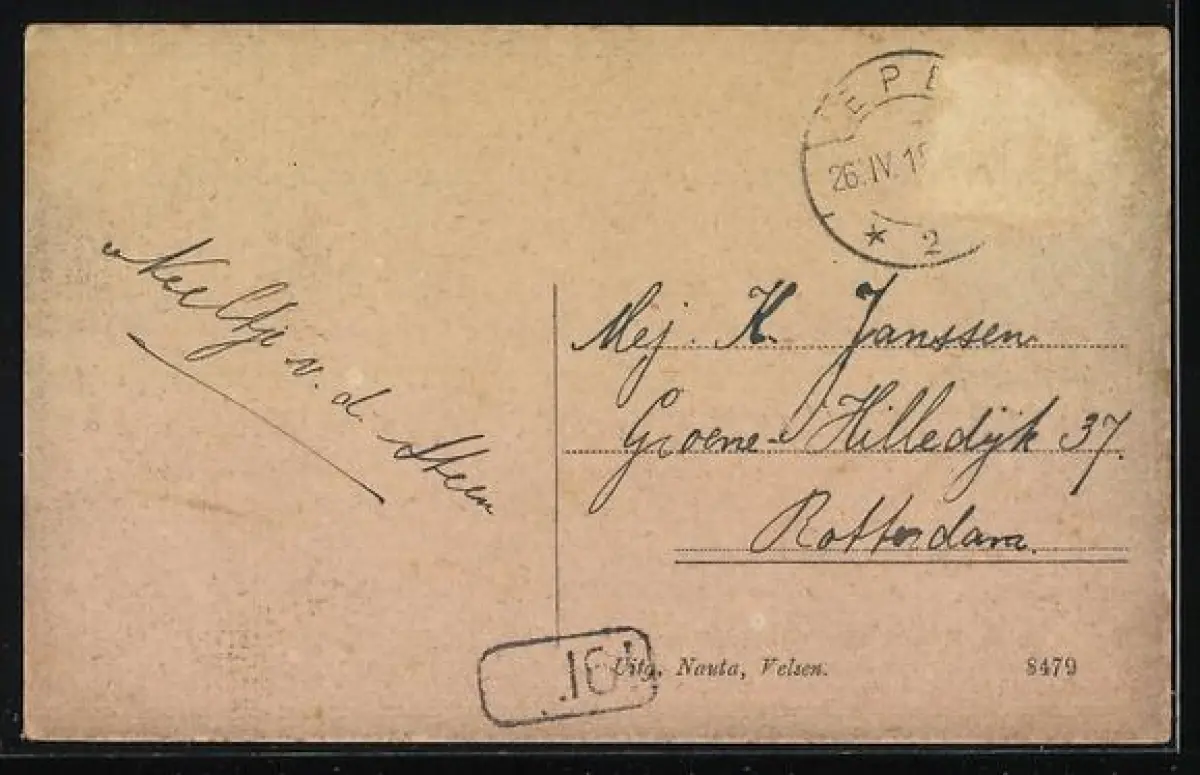 EPE
26.IV.1
* 2
Neeltje v. d. Steen
Mej. K. Janssen
Groene-Hilledijk 37.
Rotterdam.
Uitg. Nauta, Velsen.
8479